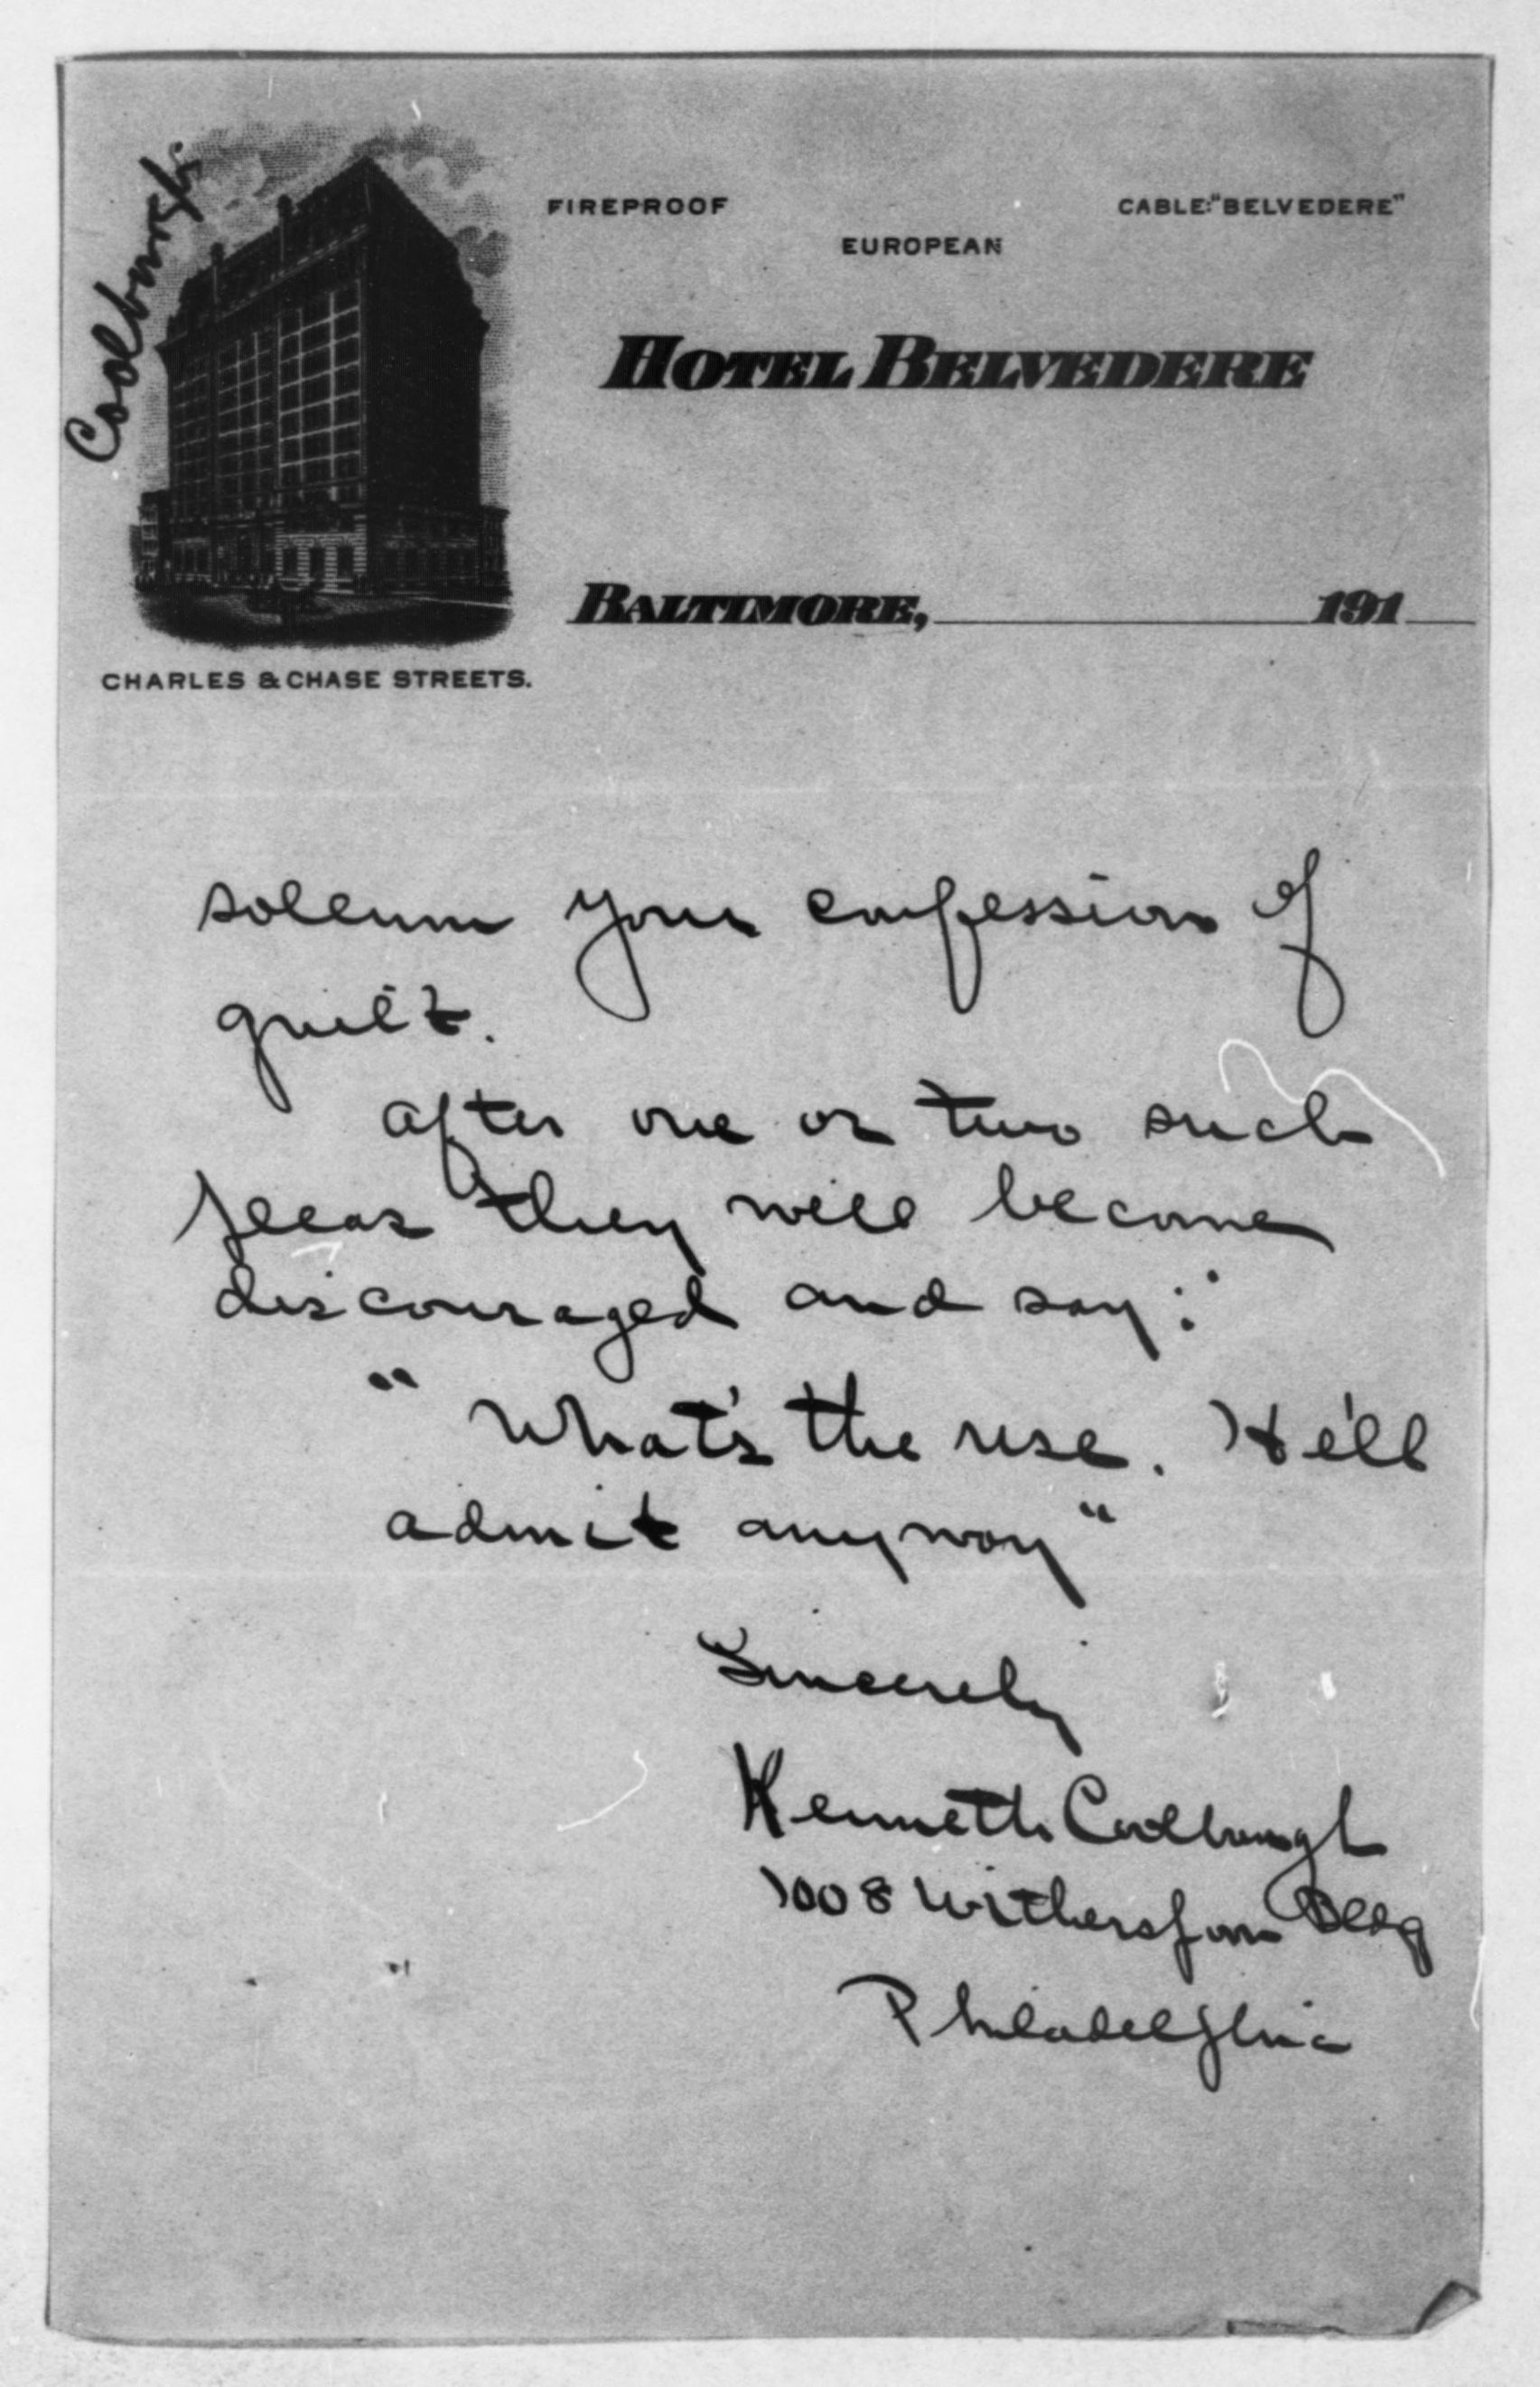 Coolbaugh
FIREPROOF
CABLE: "BELVEDERE"
EUROPEAN
HOTEL BELVEDERE
BALTIMORE, 191
CHARLES & CHASE STREETS.
solemn your confession of
guilt.
After one or two such
pleas they will become
discouraged and say:
"What's the use. He'll
admit anyway"
Sincerely
Kenneth Coolbaugh
1008 Witherspoon Bldg
Philadelphia